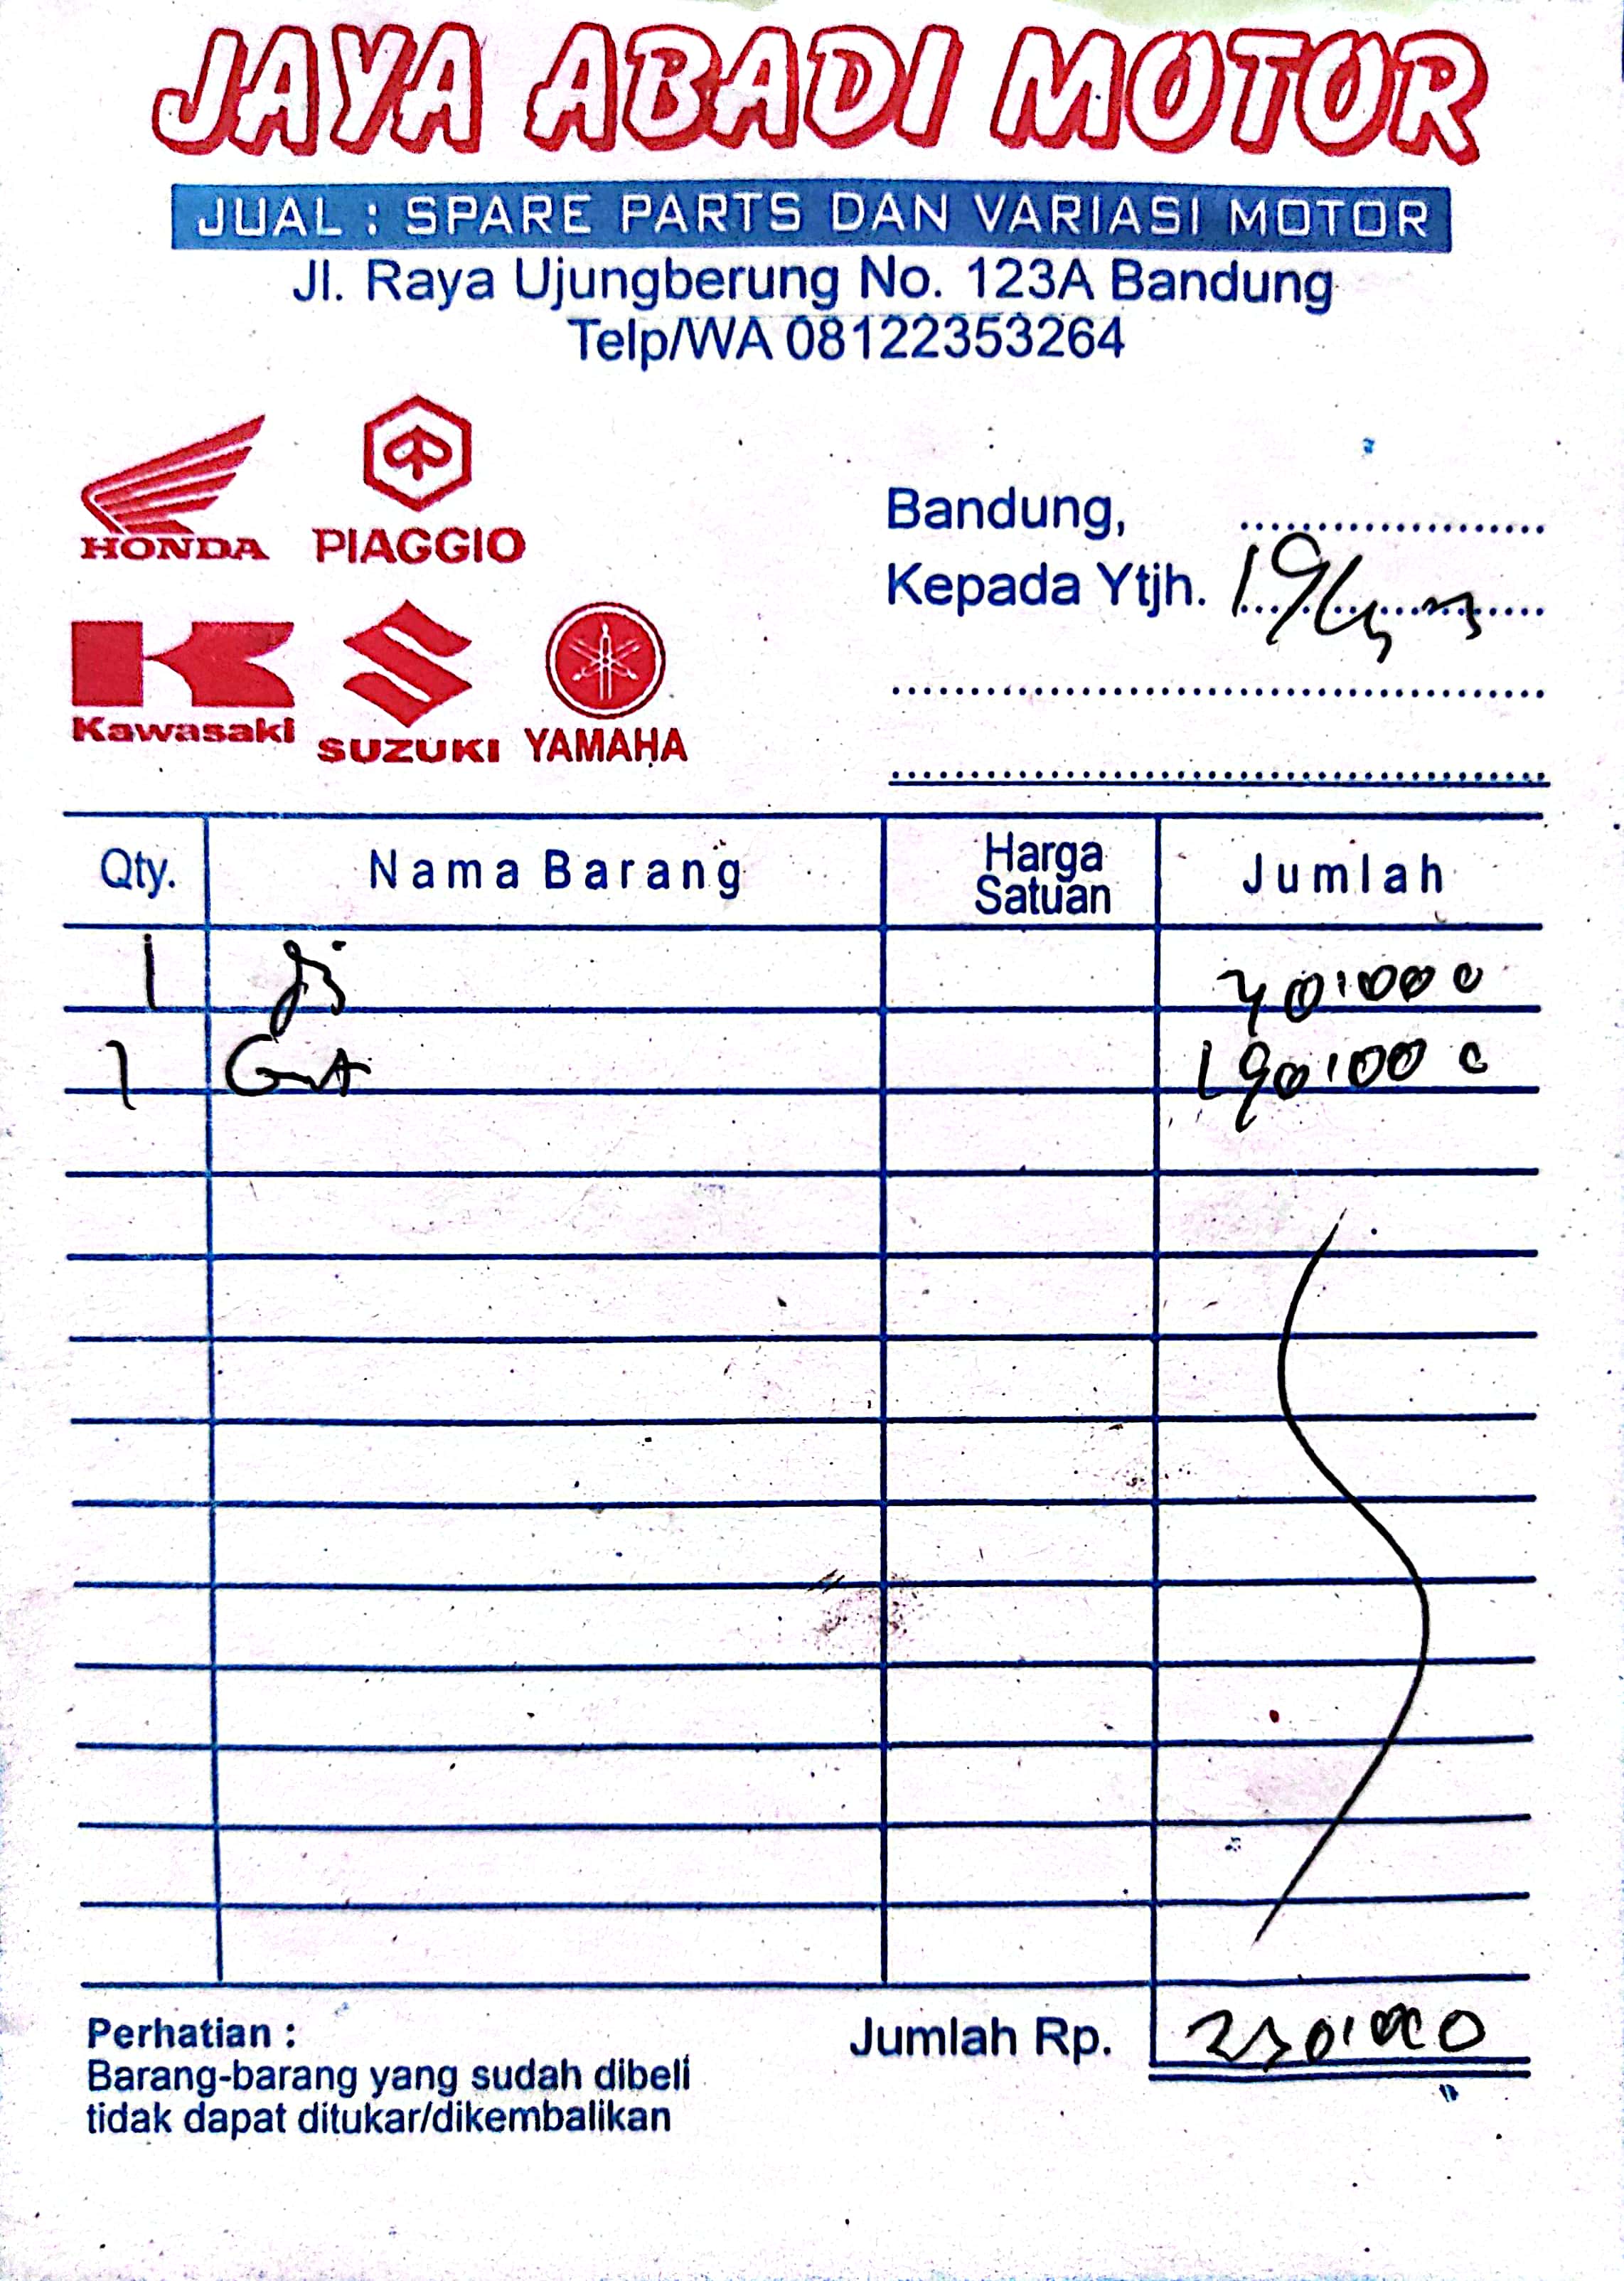 JAYA ABADI MOTOR
JUAL : SPARE PARTS DAN VARIASI MOTOR
Jl. Raya Ujungberung No. 123A Bandung
Telp/WA 08122353264
HONDA PIAGGIO
Kawasaki SUZUKI YAMAHA
Bandung, ....................
Kepada Ytjh. ....................
Qty. Nama Barang Harga Satuan Jumlah
1 40.000
1 190.000
Jumlah Rp. 230.000
Perhatian :
Barang-barang yang sudah dibeli
tidak dapat ditukar/dikembalikan